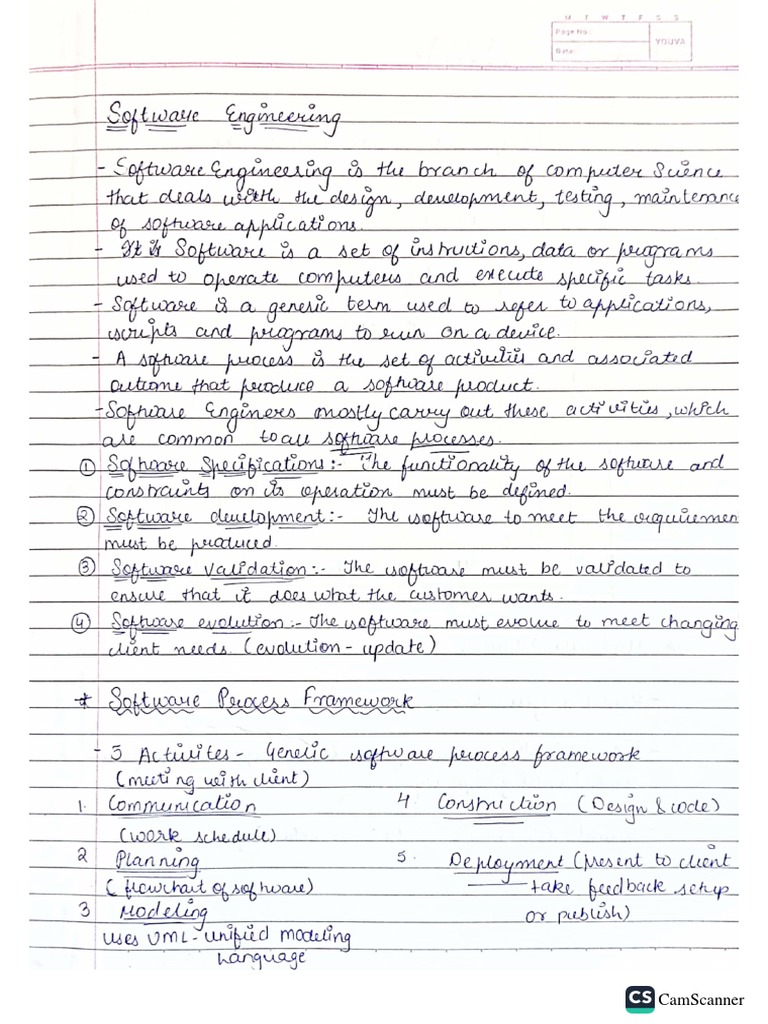 M T W T F S S
Page No.:
Date:
YOUVA
Software Engineering
- Software Engineering is the branch of computer Science
that deals with the design, development, testing, maintenance
of software applications.
- It is Software is a set of instructions, data or programs
used to operate computers and execute specific tasks.
- Software is a generic term used to refer to applications,
scripts and programs to run on a device.
- A software process is the set of activities and associated
outcome that produce a software product.
- Software Enginers mostly carry out these activities, which
are common to all software processes.
① Software Specifications:- The functionality of the software and
constraints on its operation must be defined.
② Software development:- The software to meet the requiremen
must be produced.
③ Software Validation:- The software must be validated to
ensure that it does what the customer wants.
④ Software evolution:- The software must evolve to meet changing
client needs. (evolution - update)
* Software Process Framework
- 5 Activites - Generic software process framework
(meeting with client)
1. Communication
(work schedule)
2 Planning
(flowchart of software)
3 Modeling
uses UML - unified modeling
Language
4 Construction (Design & code)
5. Deployment (present to client
take feedback setup
or publish)
CS CamScanner